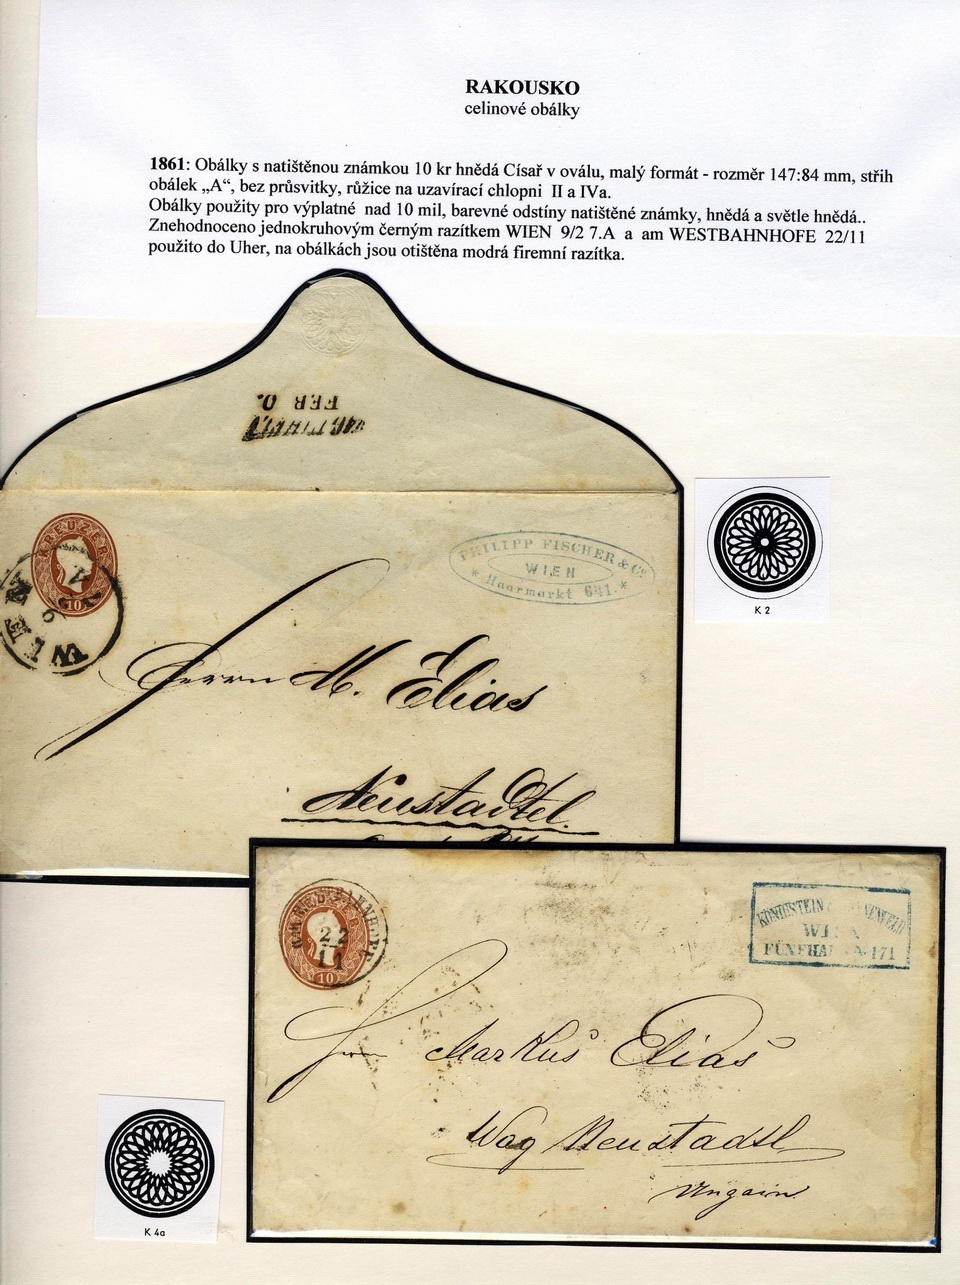 RAKOUSKO
celinové obálky
1861: Obálky s natištěnou známkou 10 kr hnědá Císař v oválu, malý formát - rozměr 147:84 mm, střih
obálek „A“, bez průsvitky, růžice na uzavírací chlopni II a IVa.
Obálky použity pro výplatné nad 10 mil, barevné odstíny natištěné známky, hnědá a světle hnědá..
Znehodnoceno jednokruhovým černým razítkem WIEN 9/2 7.A a am WESTBAHNHOFE 22/11
použito do Uher, na obálkách jsou otištěna modrá firemní razítka.
FEB 0.
KREUZER
10
WIEN
9 2
7 A
PHILIPP FISCHER & Co
WIEN
* Haarmarkt 641. *
K 2
Herrn M. Elias
Neustadtel.
BAHNHOFE
22
11
10
KÖNIGSTEIN
WIEN
FÜNFHAUS No 171
Herrn Markus Elias
Wag Neustadtl
Ungain
K 4a